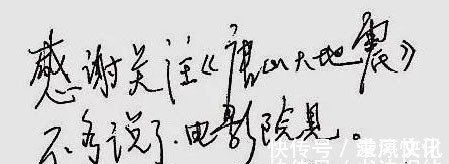 感谢关注《唐山大地震》
不多说了.电影院见。
快传号/